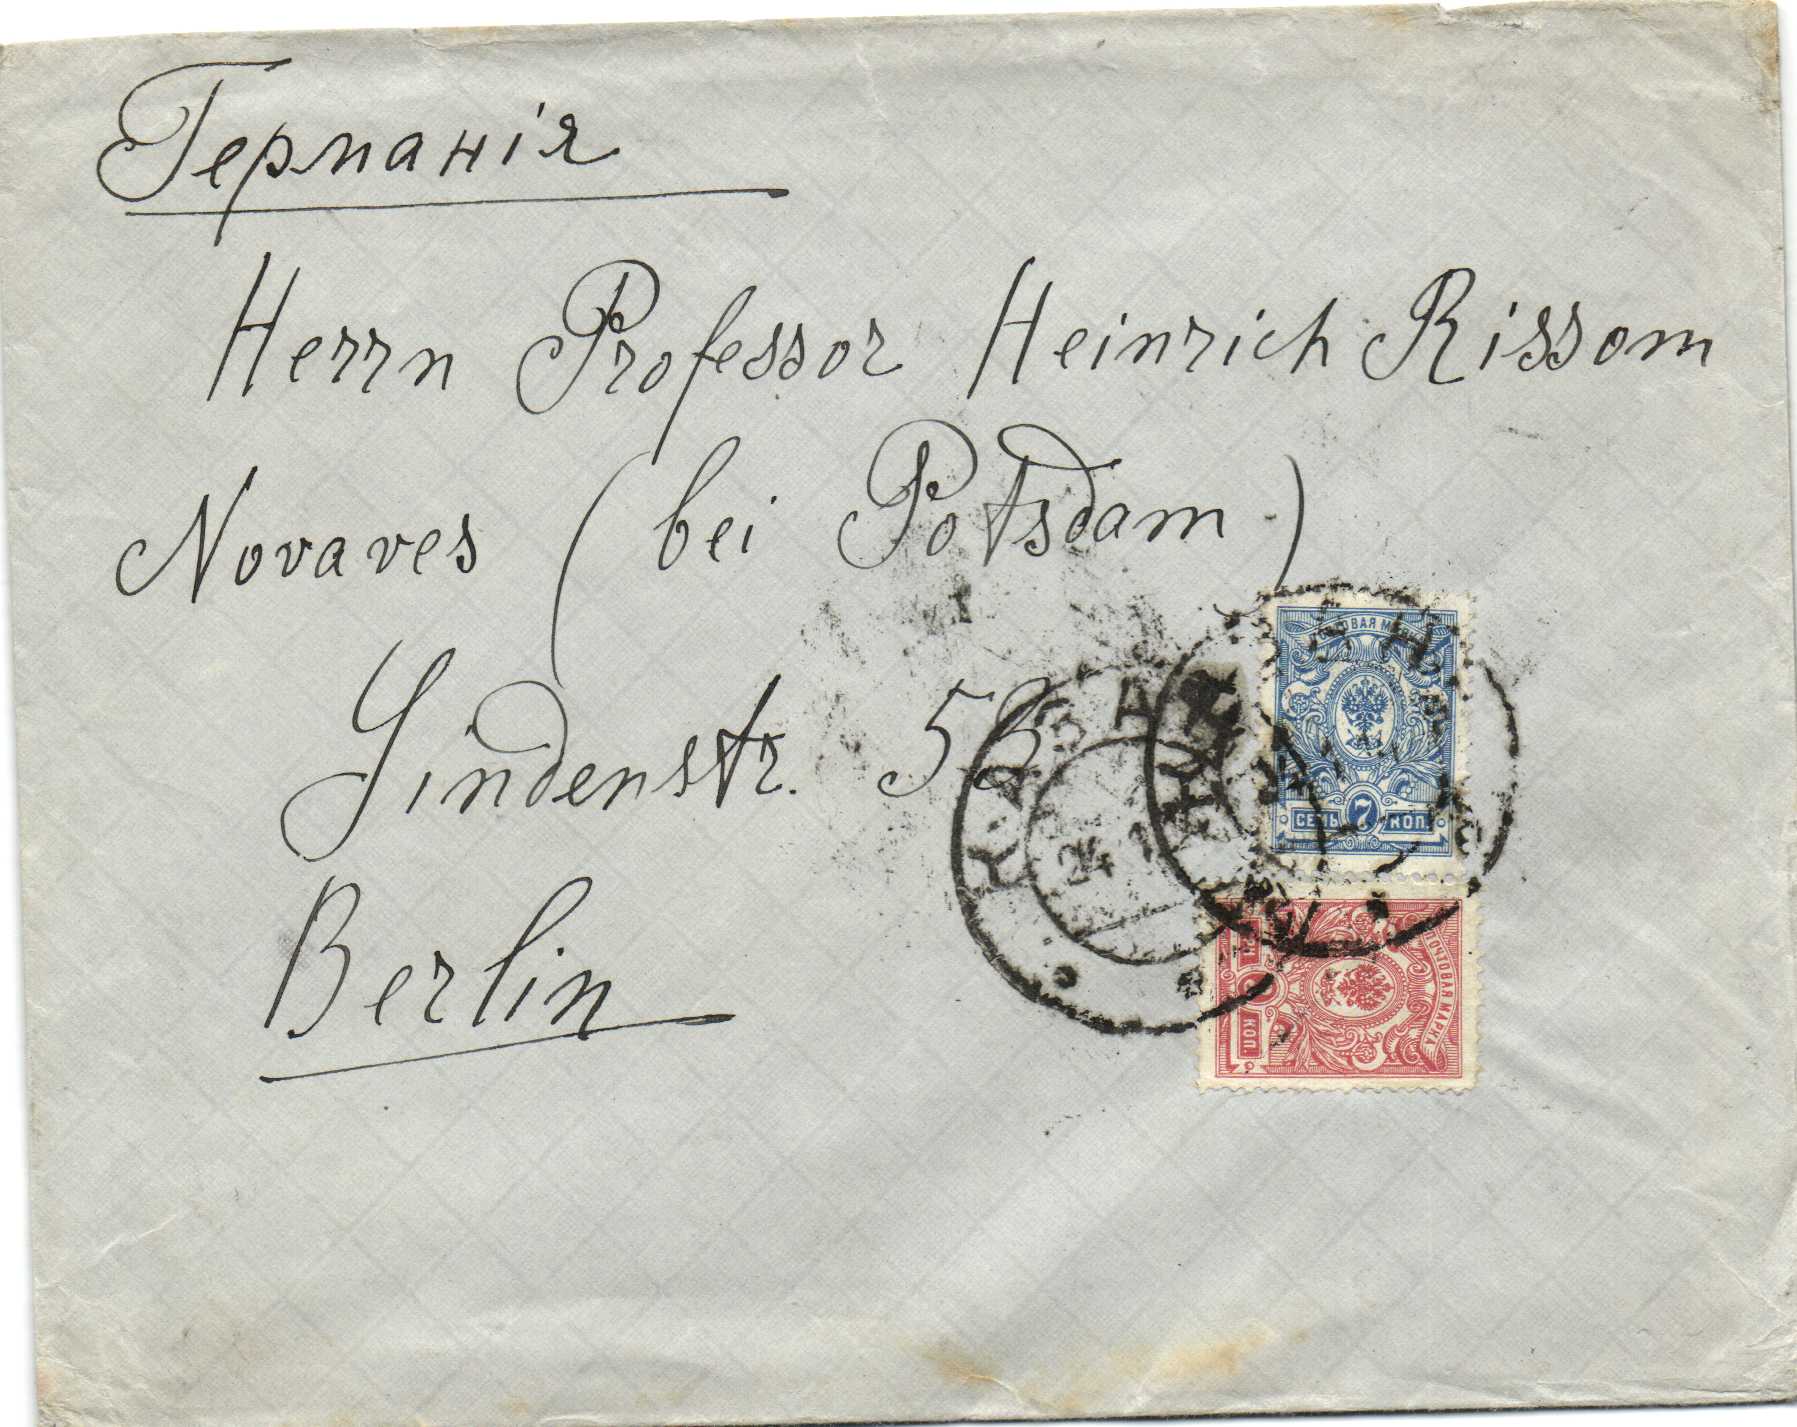 Германія
Herrn Professor Heinrich Rissom
Novaves (bei Potsdam)
Lindenstr. 53
Berlin
ПОЧТОВАЯ МАРКА
СЕМЬ 7 КОП.
КАЗАНЬ
24 1
ПОЧТОВАЯ МАРКА
КОП.